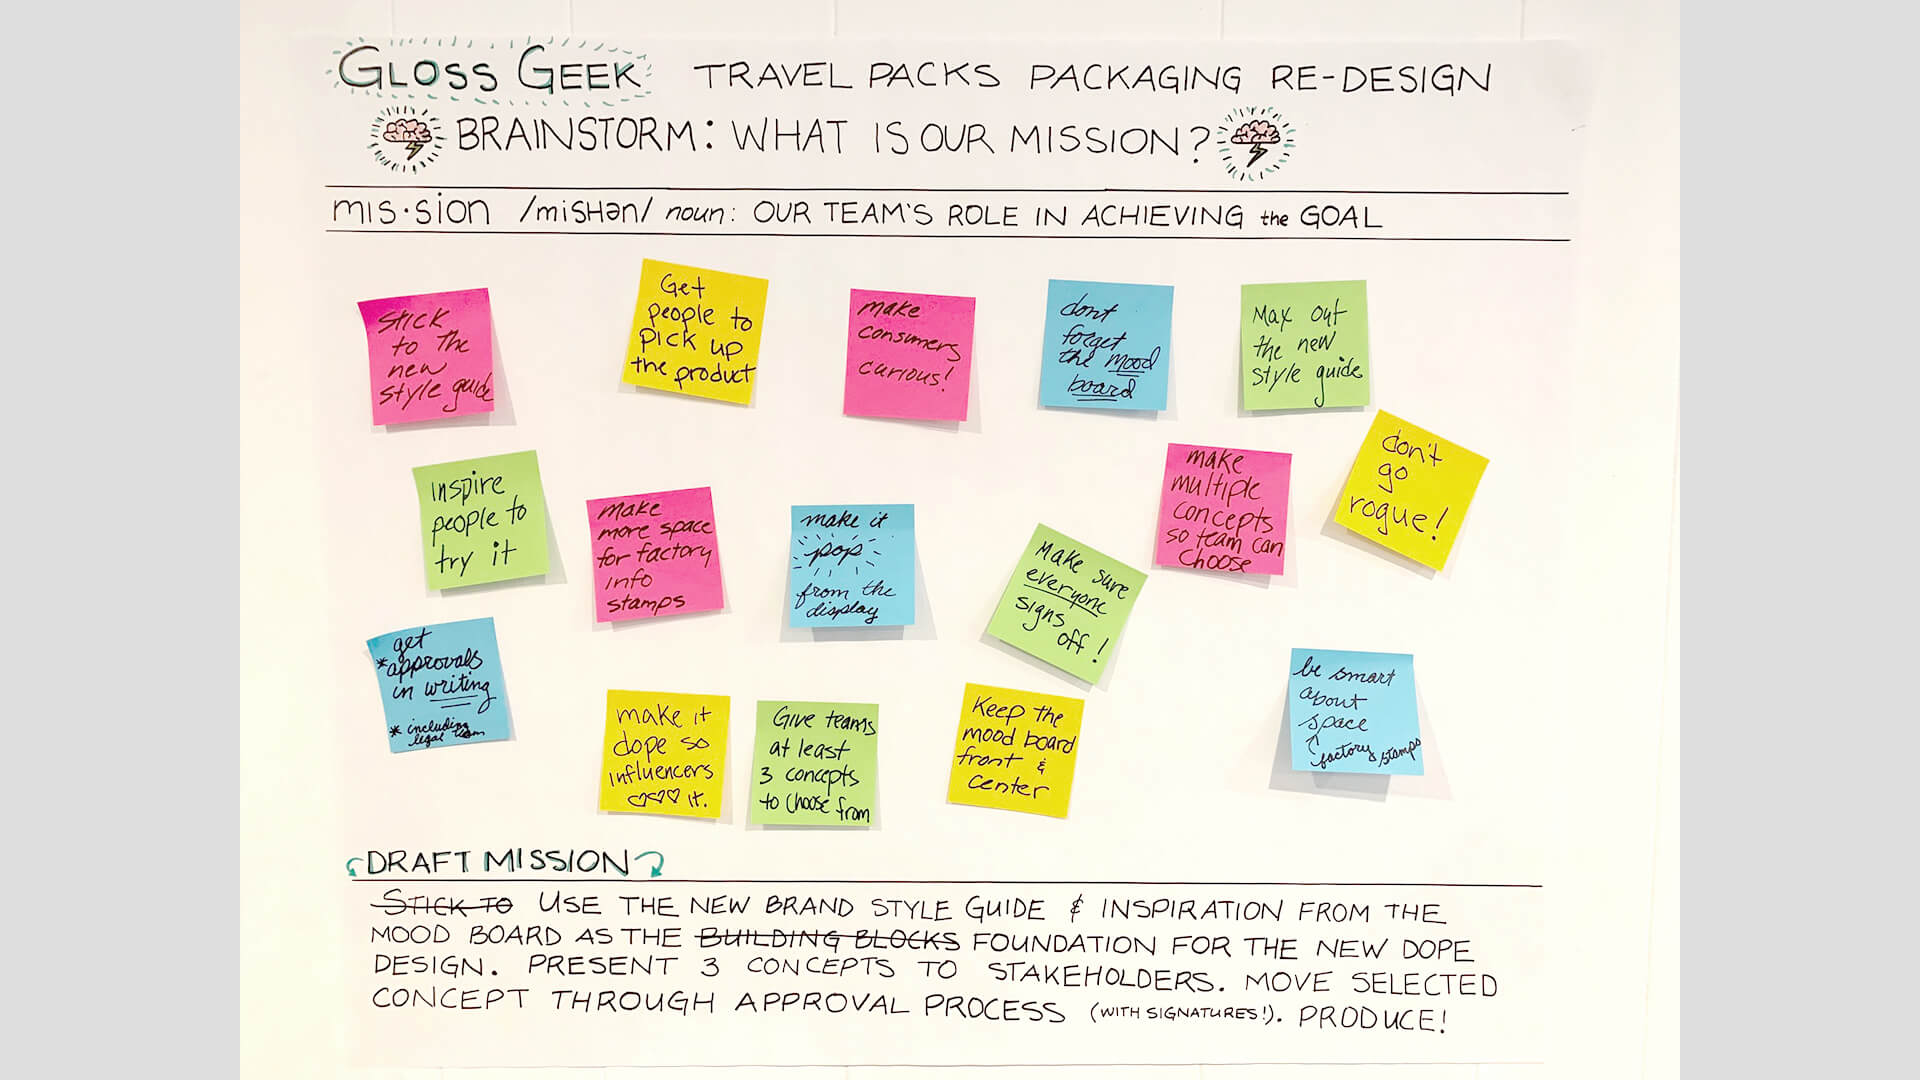 GLOSS GEEK TRAVEL PACKS PACKAGING RE-DESIGN
BRAINSTORM: WHAT IS OUR MISSION?
mis·sion /misHən/ noun: OUR TEAM'S ROLE IN ACHIEVING the GOAL
stick
to the
new
style guide
Get
people to
pick up
the product
make
consumers
curious!
dont
forget
the mood
board
Max out
the new
style guide
inspire
people to
try it
make
more space
for factory
info
stamps
make it
pop
from the
display
Make sure
everyone
signs
off!
make
multiple
concepts
so team can
choose
don't
go
rogue!
get
*approvals
in writing
* including
legal team
make it
dope so
influencers
♡♡♡ it.
Give teams
at least
3 concepts
to choose from
Keep the
mood board
front &
center
be smart
about
space
factory stamps
DRAFT MISSION
STICK TO USE THE NEW BRAND STYLE GUIDE & INSPIRATION FROM THE
MOOD BOARD AS THE BUILDING BLOCKS FOUNDATION FOR THE NEW DOPE
DESIGN. PRESENT 3 CONCEPTS TO STAKEHOLDERS. MOVE SELECTED
CONCEPT THROUGH APPROVAL PROCESS (WITH SIGNATURES!). PRODUCE!